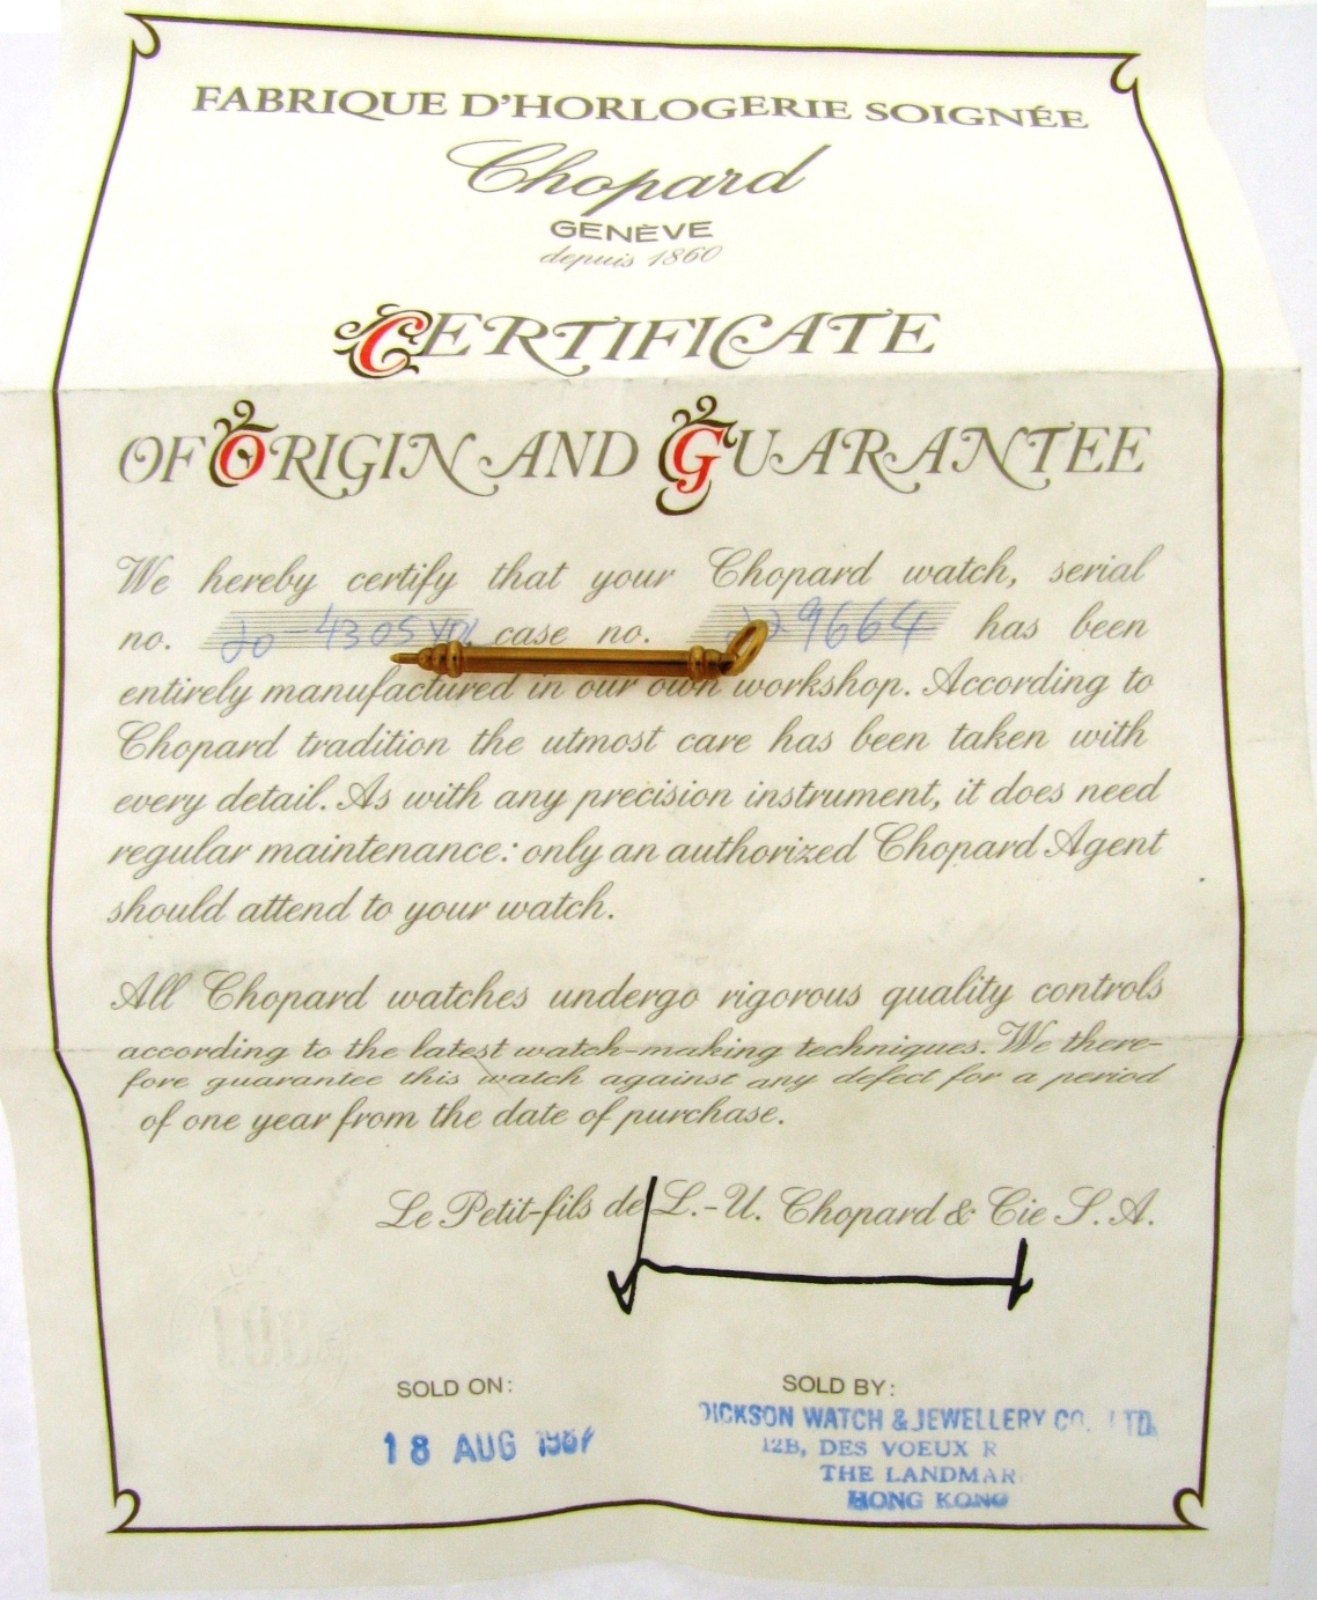 FABRIQUE D'HORLOGERIE SOIGNÉE
Chopard
GENÈVE
depuis 1860
CERTIFICATE
OF ORIGIN AND GUARANTEE
We hereby certify that your Chopard watch, serial
no. 20-4305 case no. 229664 has been
entirely manufactured in our own workshop. According to
Chopard tradition the utmost care has been taken with
every detail. As with any precision instrument, it does need
regular maintenance: only an authorized Chopard Agent
should attend to your watch.
All Chopard watches undergo rigorous quality controls
according to the latest watch-making techniques. We there-
fore guarantee this watch against any defect for a period
of one year from the date of purchase.
Le Petit-fils de L.-U. Chopard & Cie S.A.
SOLD ON:
18 AUG 1987
SOLD BY:
DICKSON WATCH & JEWELLERY CO. LTD.
12B, DES VOEUX R
THE LANDMAR
HONG KONG